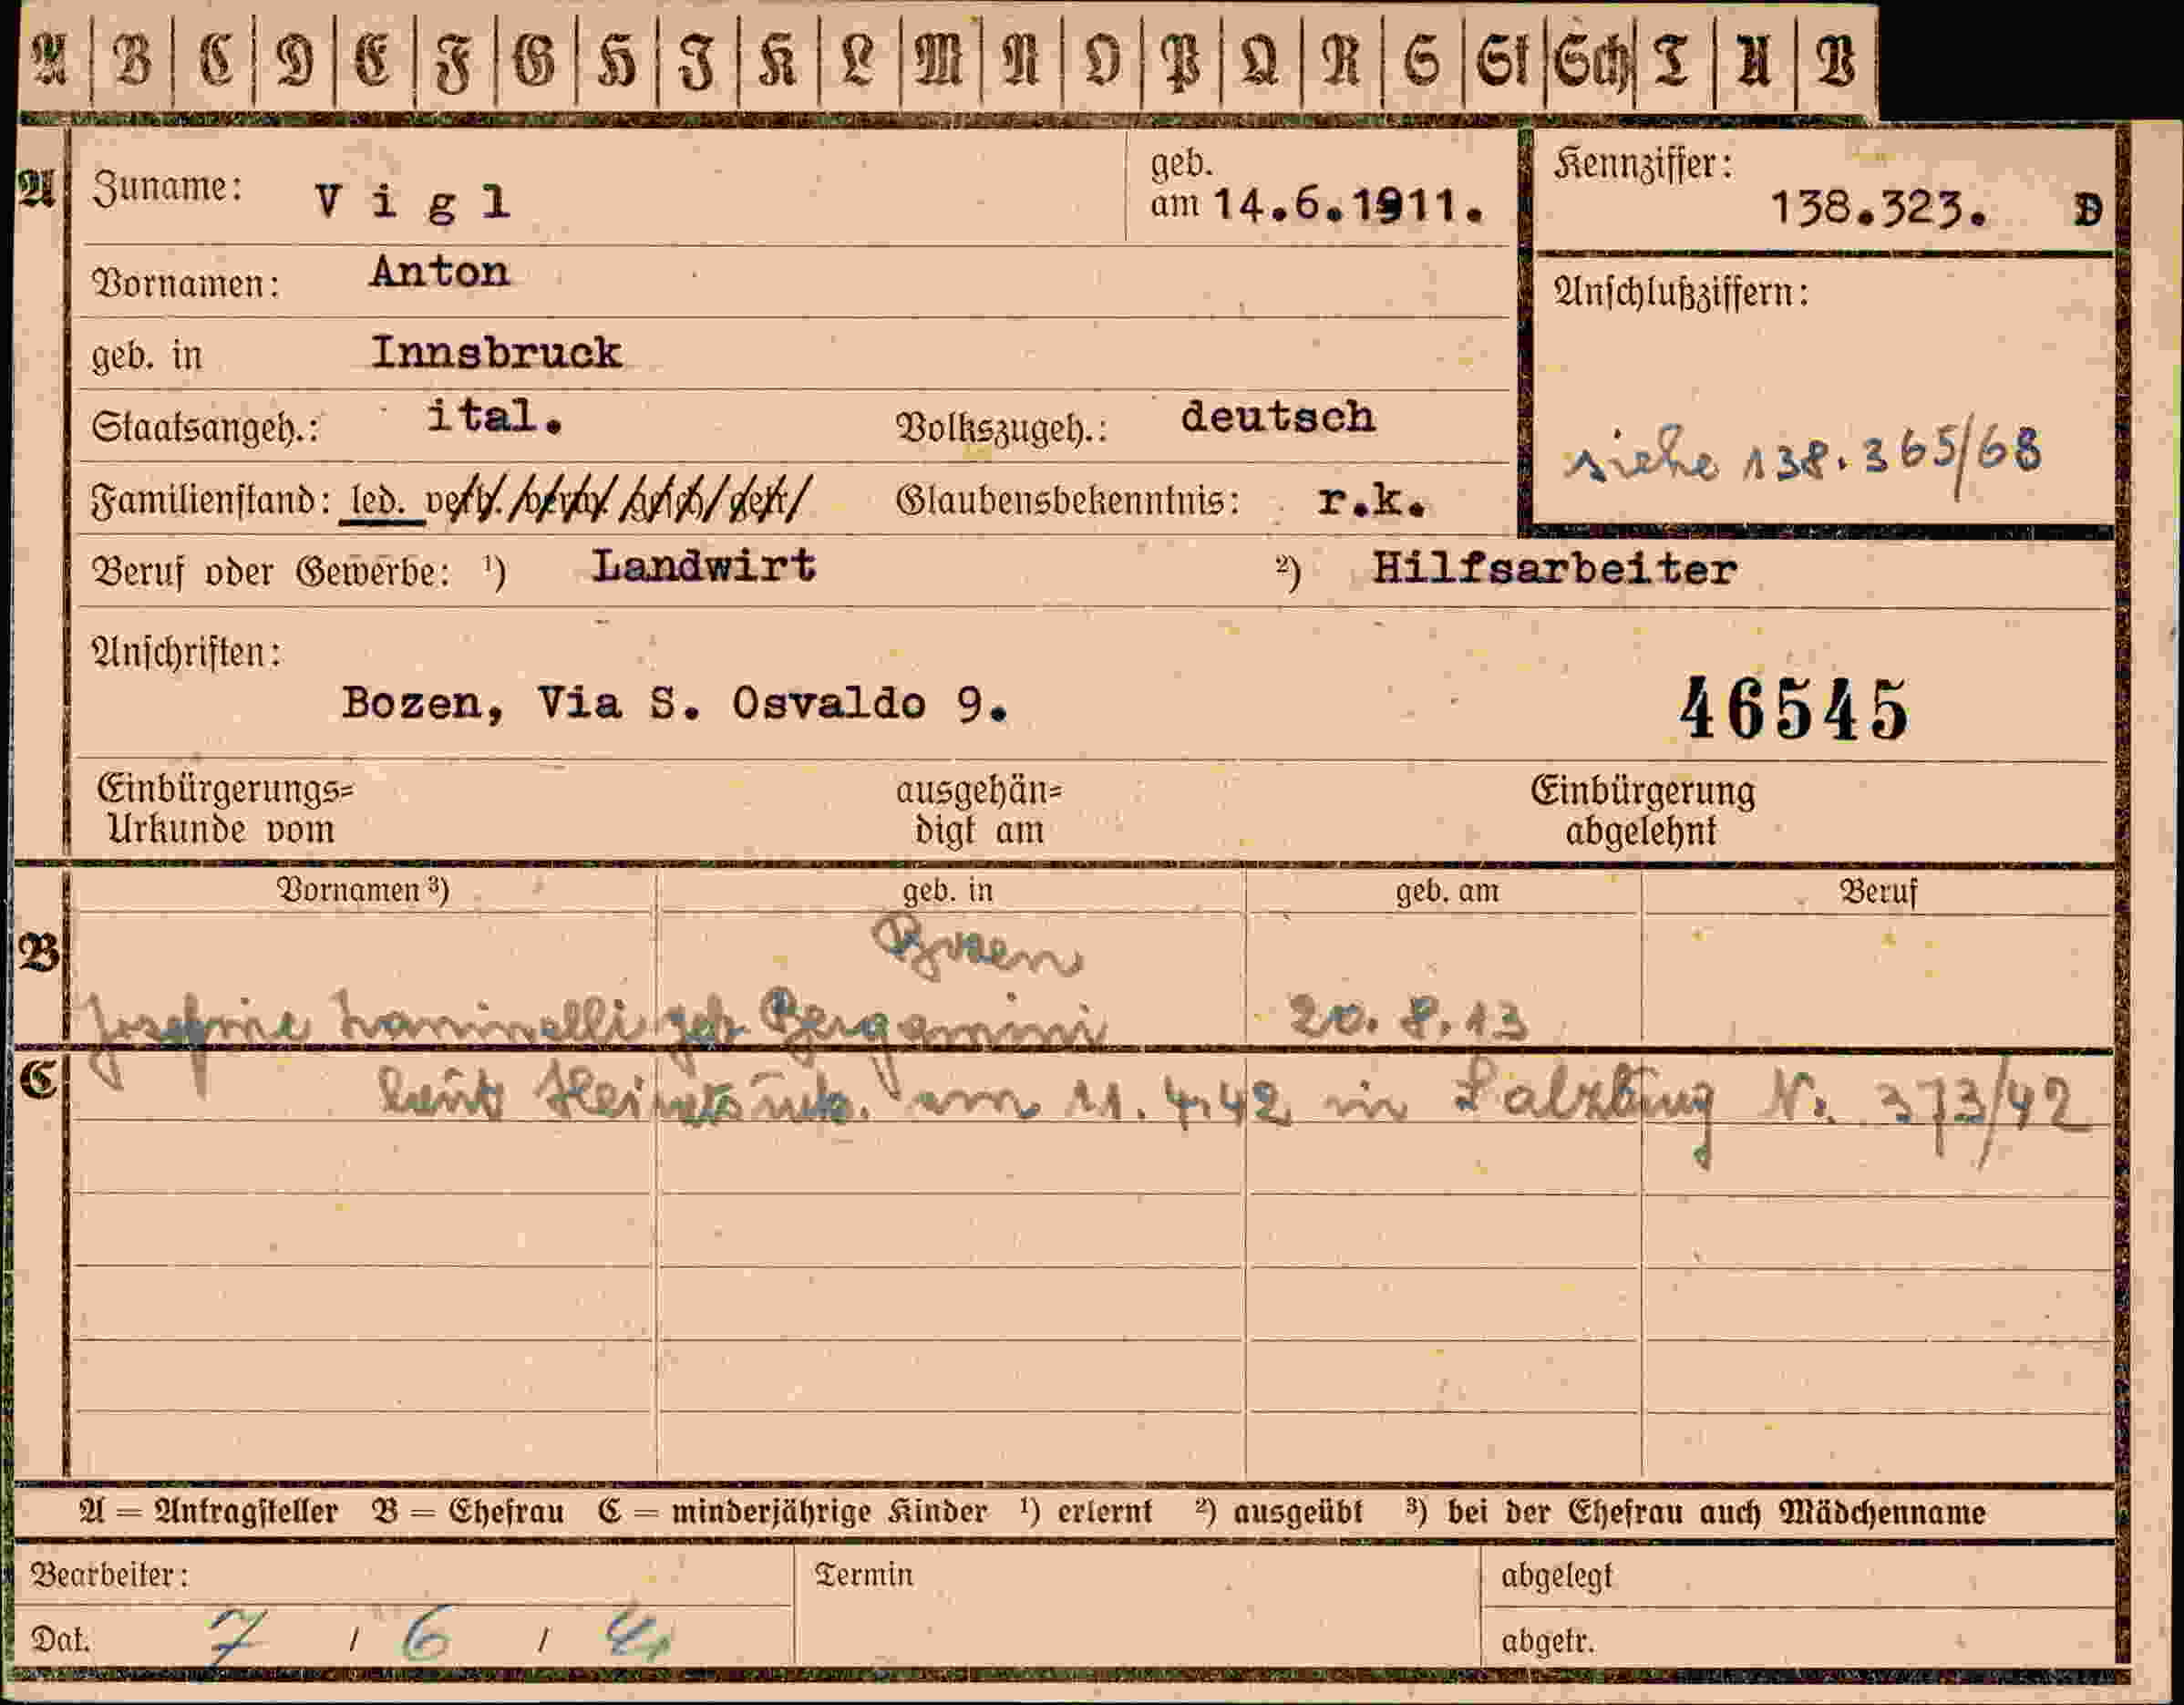 A B C D E F G H I K L M N O P Q R S St Sch T U V
A Zuname: Vigl geb. am 14.6.1911. Kennziffer: 138.323. D
Vornamen: Anton Anschlußziffern:
geb. in Innsbruck
Staatsangeh.: ital. Volkszugeh.: deutsch siehe 138.365/68
Familienstand: led. verh. / verw. / gesch. / getr. / Glaubensbekenntnis: r.k.
Beruf oder Gewerbe: ¹) Landwirt ²) Hilfsarbeiter
Anschriften:
Bozen, Via S. Osvaldo 9. 46545
Einbürgerungs= ausgehän= Einbürgerung
Urkunde vom digt am abgelehnt
Vornamen ³) geb. in geb. am Beruf
B Bozen
Josefine geb. Bergamini 20.8.13
C laut Heiratsurk. am 11.4.42 in Salzburg Nr. 373/42
A = Antragsteller B = Ehefrau C = minderjährige Kinder ¹) erlernt ²) ausgeübt ³) bei der Ehefrau auch Mädchenname
Bearbeiter: Termin abgelegt
Dat. 7 / 6 / 41 abgetr.